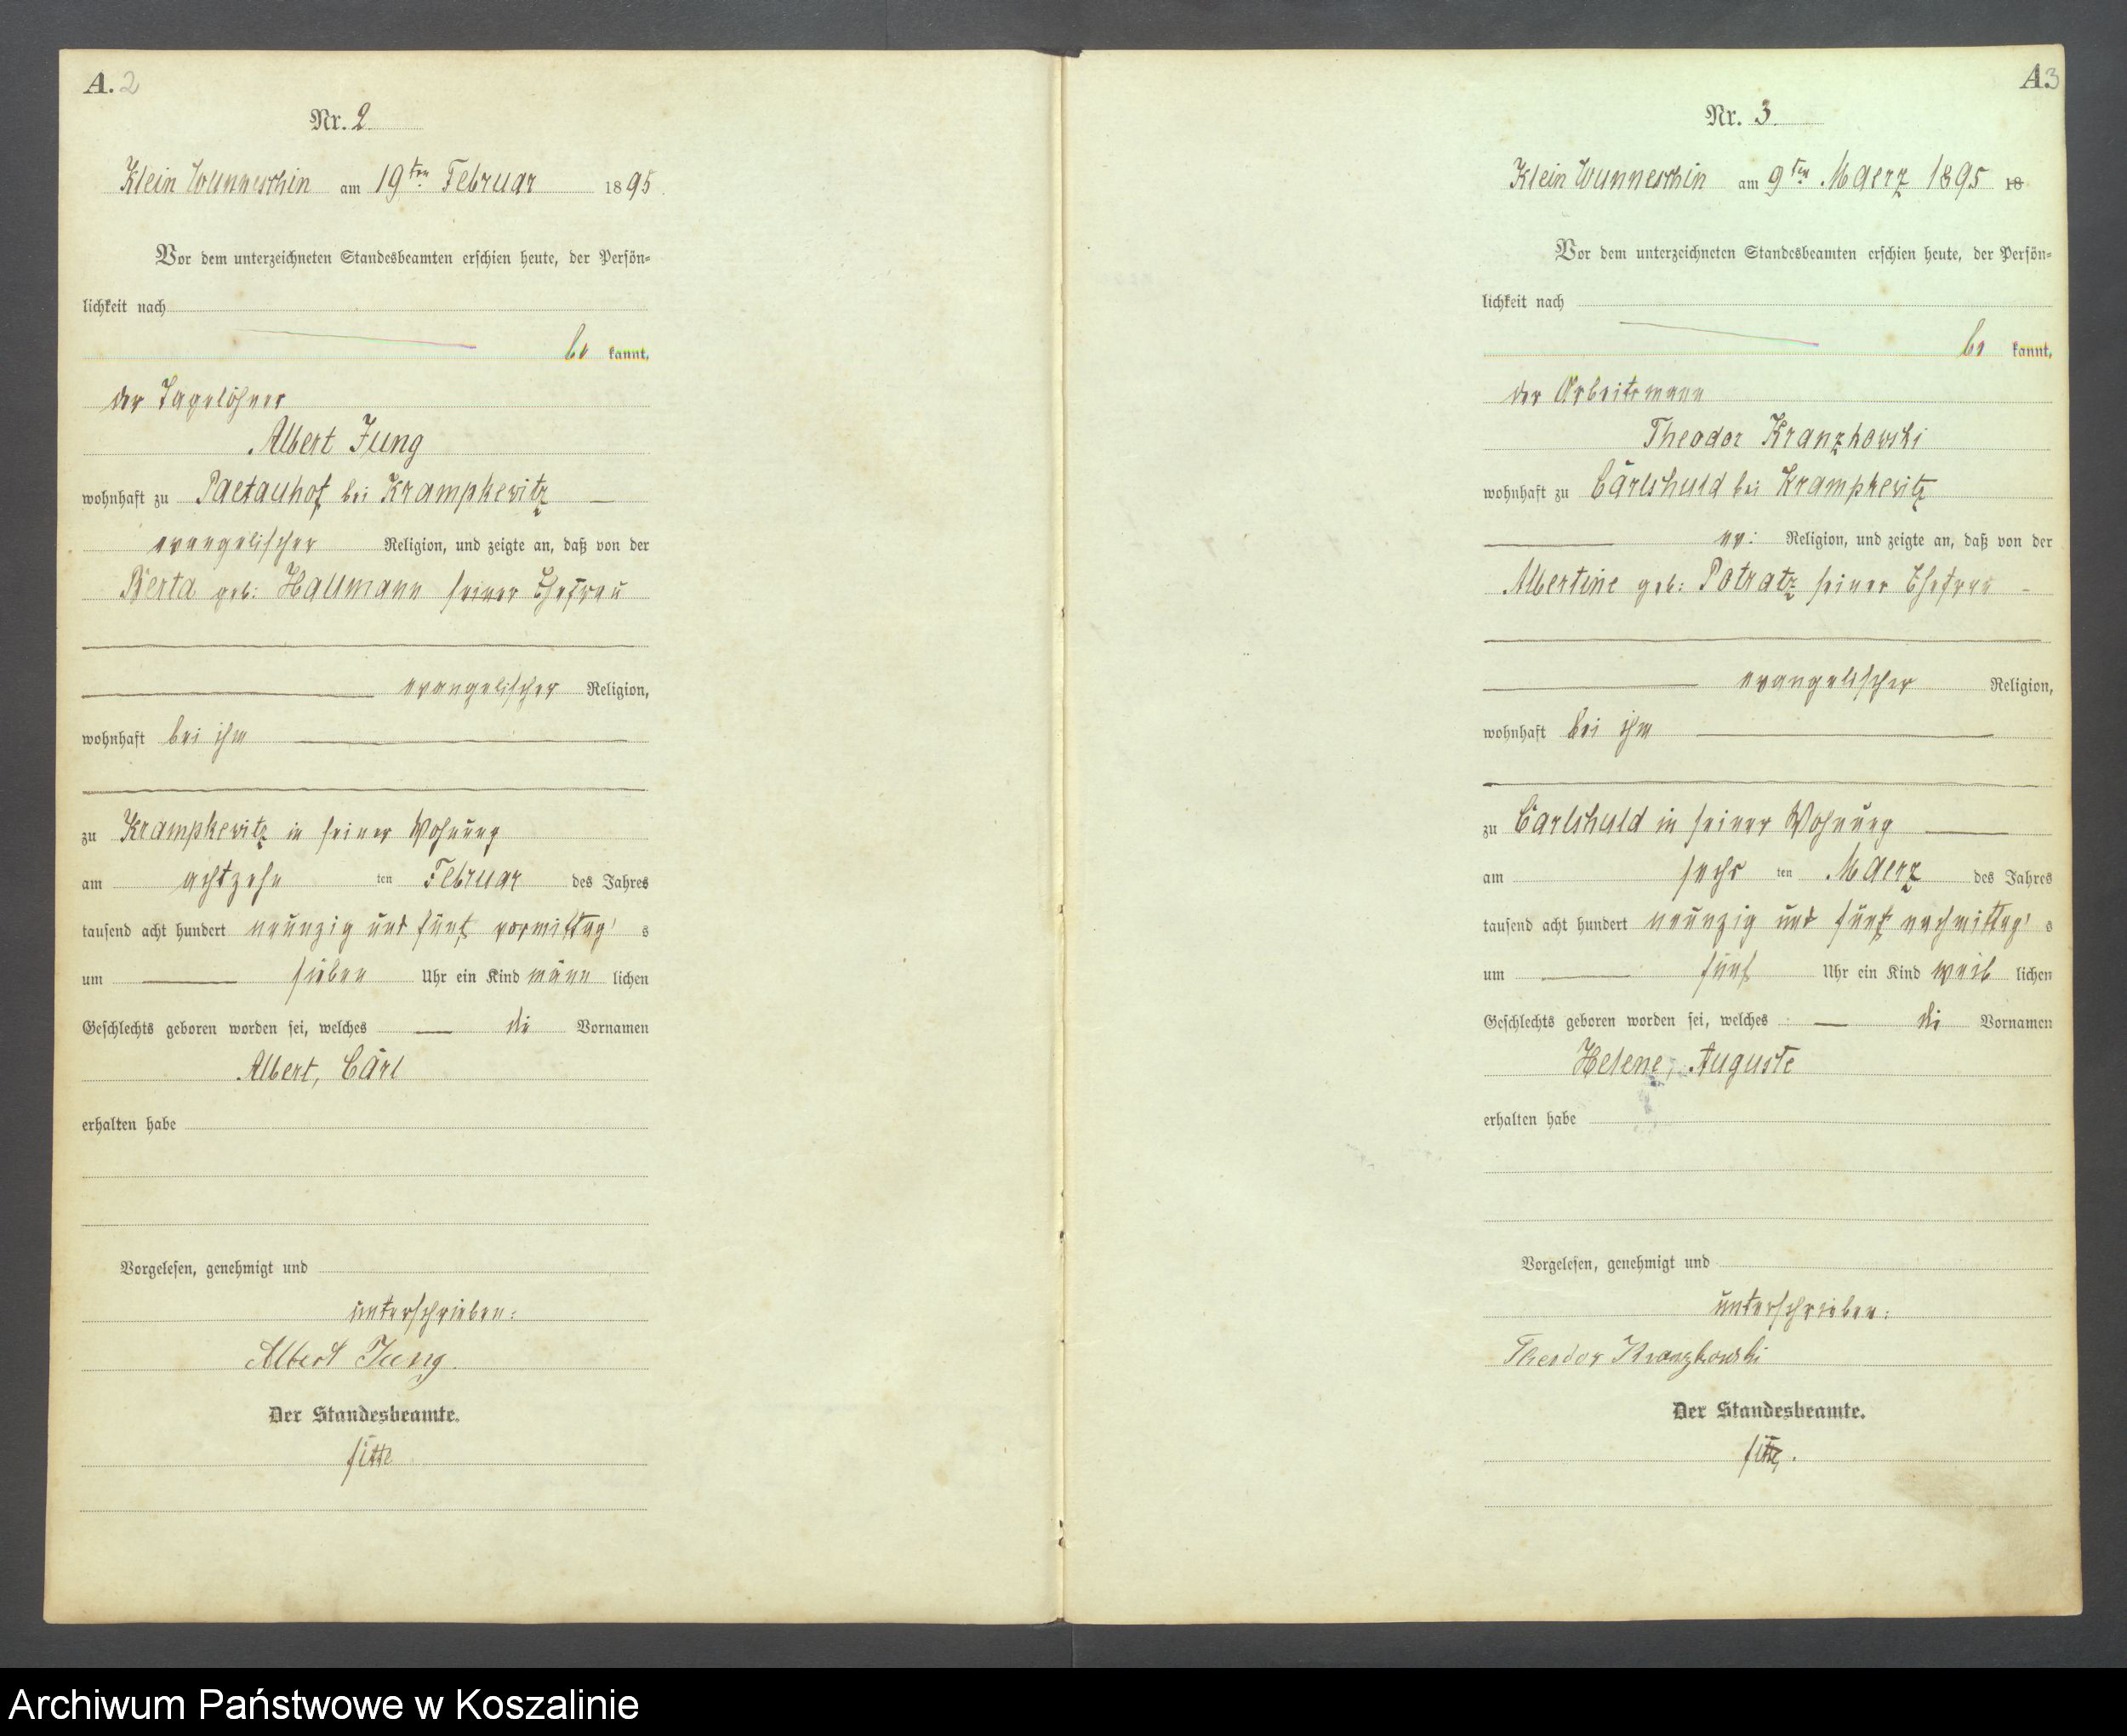 A. 2
Nr. 2.
Klein Wunneschin am 19ten Februar 1895.
Vor dem unterzeichneten Standesbeamten erschien heute, der Persön-
lichkeit nach
be kannt,
der Tagelöhner
Albert Jung
wohnhaft zu Paetauhof bei Krampkewitz
evangelischer Religion, und zeigte an, daß von der
Berta geb: Hallmann seiner Ehefrau
evangelischer Religion,
wohnhaft bei ihm
zu Krampkewitz in seiner Wohnung
am achtzehn ten Februar des Jahres
tausend acht hundert neunzig und fünf vormittag s
um sieben Uhr ein Kind männ lichen
Geschlechts geboren worden sei, welches die Vornamen
Albert, Carl
erhalten habe
Vorgelesen, genehmigt und
unterschrieben:
Albert Jung.
Der Standesbeamte.
A. 3
Nr. 3.
Klein Wunneschin am 9ten Maerz 1895 18
Vor dem unterzeichneten Standesbeamten erschien heute, der Persön-
lichkeit nach
be kannt,
der Arbeitsmann
Theodor Kranzkowski
wohnhaft zu Carlshuld bei Krampkewitz
ev: Religion, und zeigte an, daß von der
Albertine geb: Potratz seiner Ehefrau
evangelischer Religion,
wohnhaft bei ihm
zu Carlshuld in seiner Wohnung
am sechs ten Maerz des Jahres
tausend acht hundert neunzig und fünf nachmittag s
um fünf Uhr ein Kind weib lichen
Geschlechts geboren worden sei, welches die Vornamen
Helene, Auguste
erhalten habe
Vorgelesen, genehmigt und
unterschrieben:
Theodor Kranzkowski
Der Standesbeamte.
Archiwum Państwowe w Koszalinie